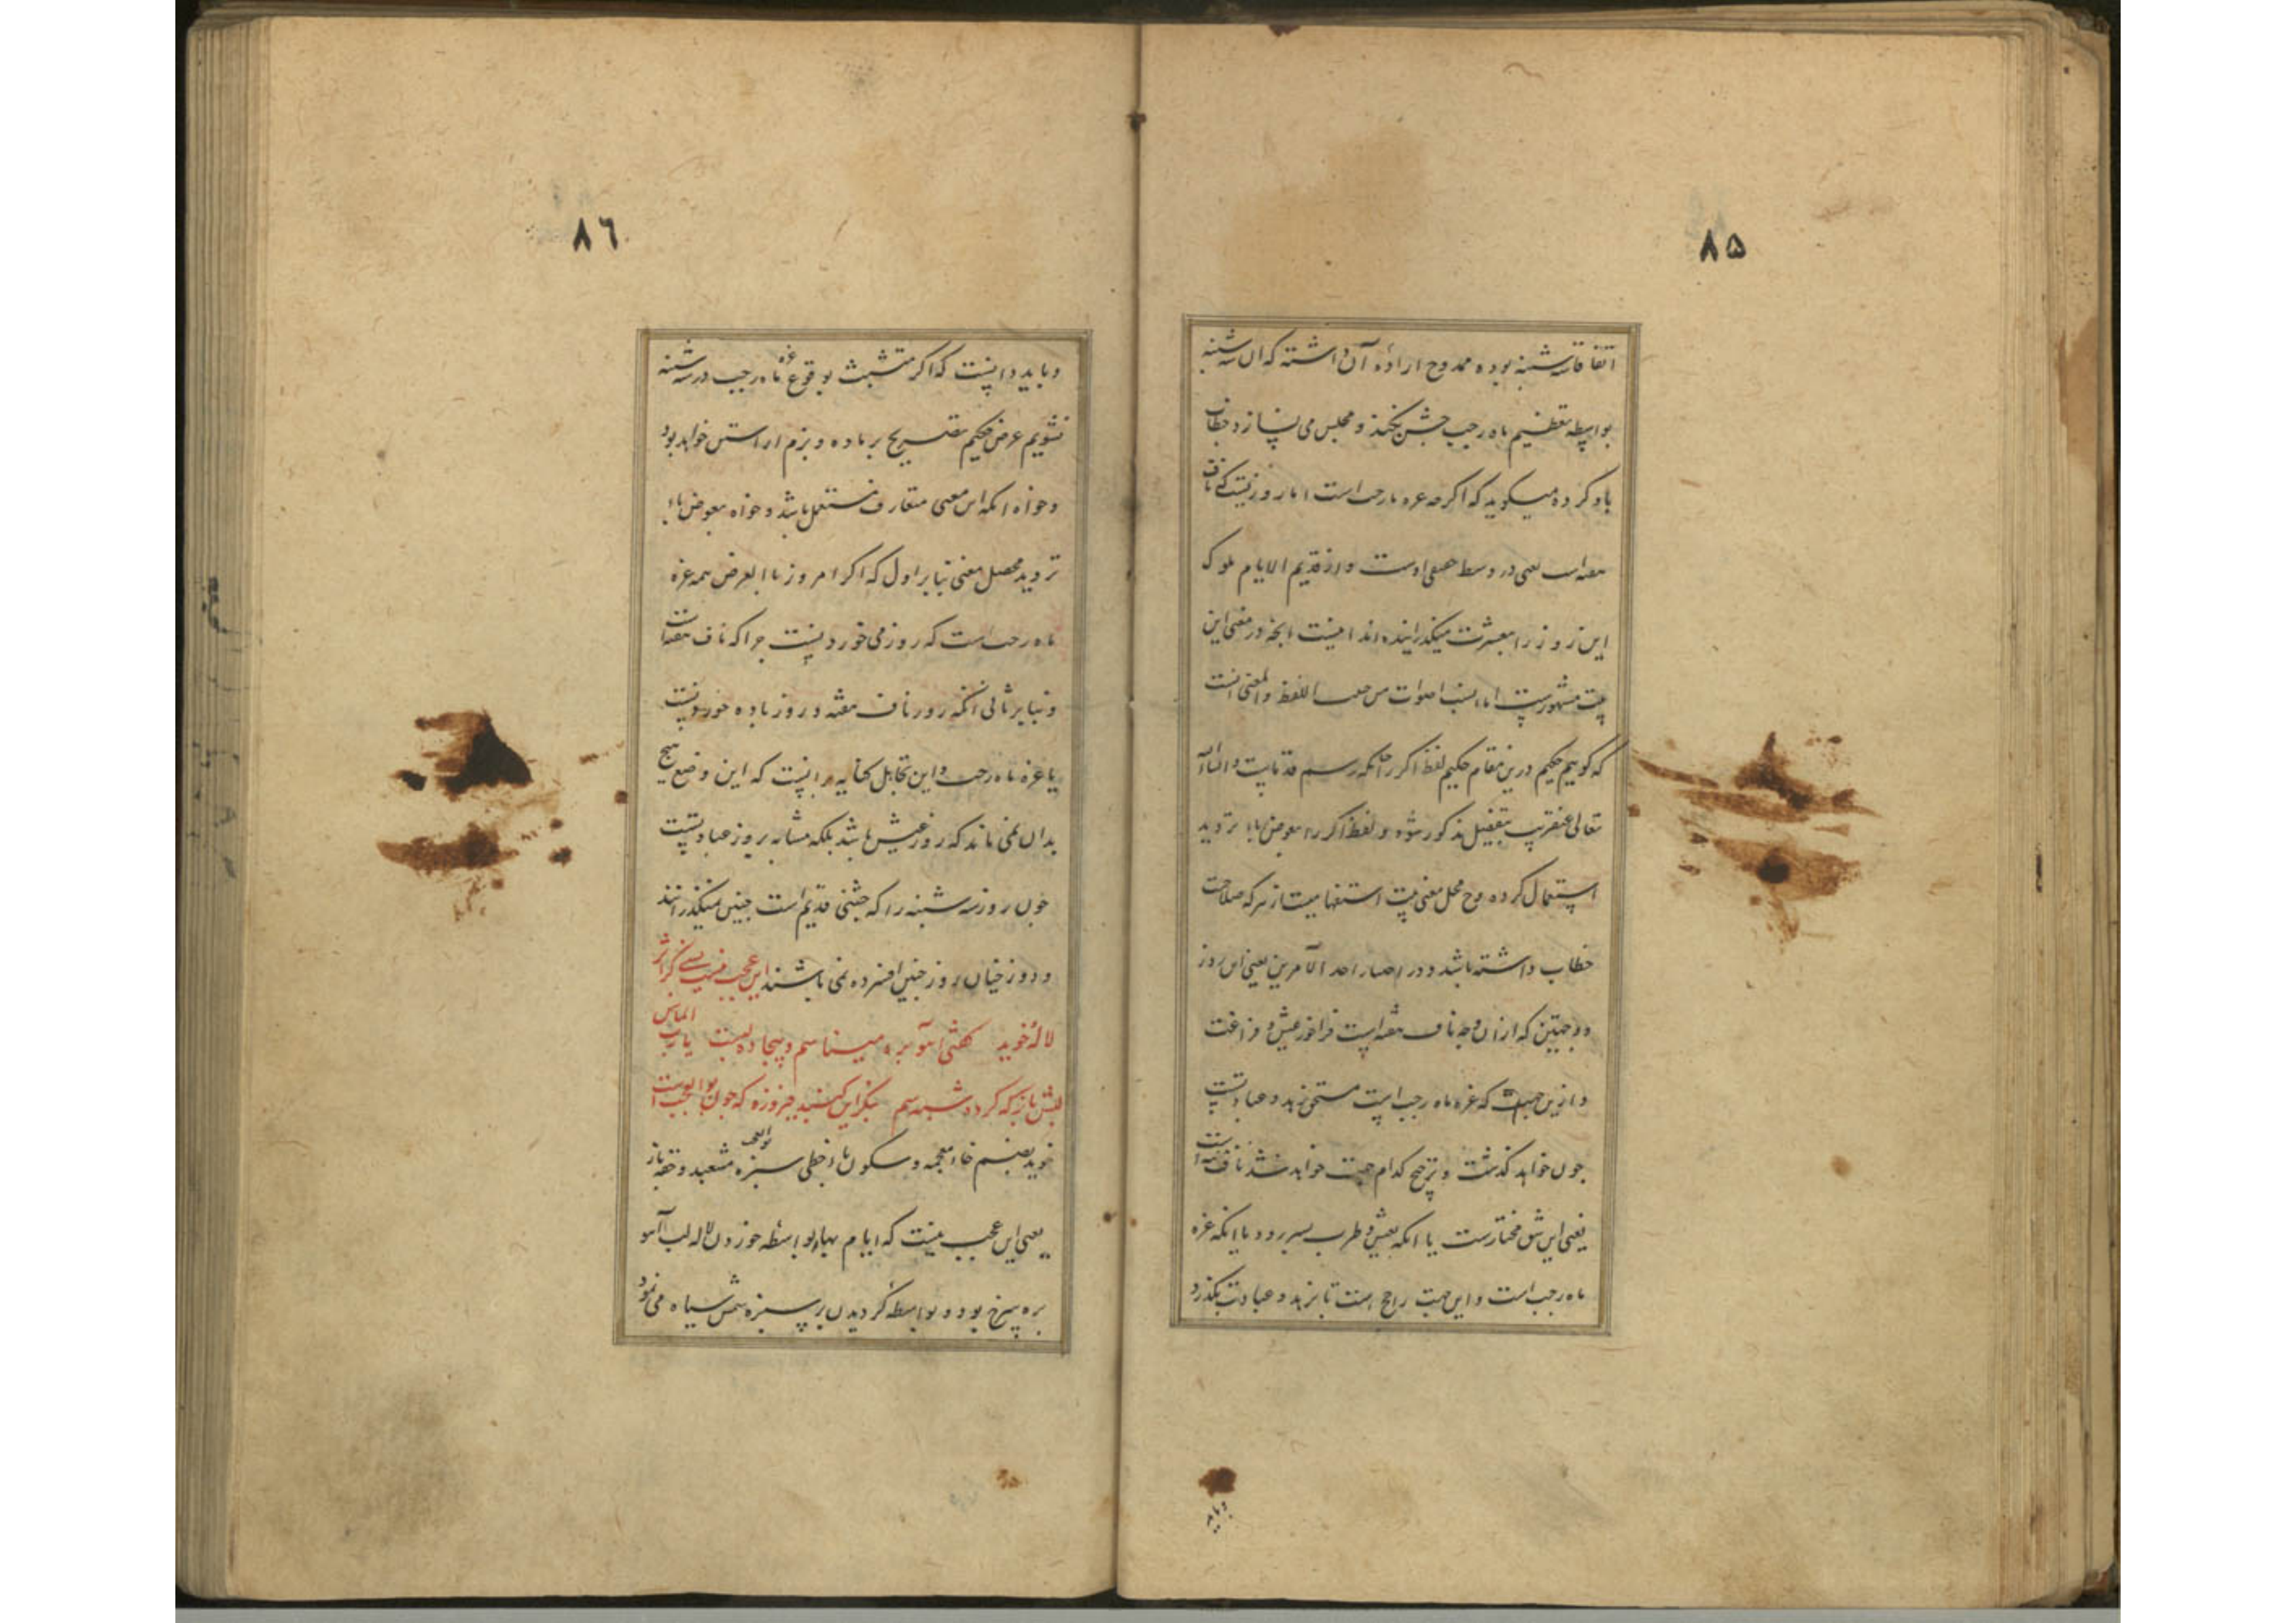 ۸۵
اتفاقا سه شنبه بوده ممدوح اراده آن داشته که آن سه شنبه
بواسطه تعظیم ماه رجب جشن نکند و مجلس می نسازد خطاب
باو کرده میکوید که اکرچه غره ماه رجب است اما روزیست که ناف
هفته است یعنی در وسط حقیقی اوست و از قدیم الایام ملوک
این روز را بعشرت میکذرانیده اند اینست انچه در معنی این
بیت مشهورست اما انسب اصوات من حیث اللفظ والمعنی آنست
که کوییم حکیم درین مقام لفظ اکر را چنانکه رسم قدماست و انشاالله
تعالی عنقریب بتفصیل مذکور شود و لفظ اکر را بمعوض یا تردید
استعمال کرده و محل معنی بیت استفهامیست از هر که صلاحیت
خطاب داشته باشد و در اختیار احد الامرین یعنی این روز
دو جهتین که از آن وجه ناف هفته است فراخور عیش و فراغت
و ازین جهت که غره ماه رجب است مستحق زهد و عبادتست
چون خواهد کذشت و ترجیح کدام جهت خواهد شد ناف هفته است
یعنی این شق مختارست یا انکه بعیش و طرب بسر رود یا انکه غره
ماه رجب است و این جهت راجح است تا بزهد و عبادت بکذرد
وباید
۸٦
و باید دانست که اکر متشبث بوقوع غره ماه رجب در سه شنبه
نشویم عرض حکیم تصریح بر باده و بزم اراستن خواهد بود
و خواه انکه این معنی متعارف مستعمل باشد و خواه بمعوض یا
تردید محصل معنی بنابر اول که اکر امروز بالعرض همه غره
ماه رجب است که روز می خوردنست چرا که ناف هفته است
و بنابر ثانی انکه روز ناف هفته و روز باده خوردنست
یا غره ماه رجب و این تجاهل کنایه بر انست که این وضع هیچ
بدان نمی ماند که روز عیش باشد بلکه مشابه بروز عبادتست
چون روز سه شنبه را که جشنی قدیم است چنین نمیکذرانند
و در روز چنان روز چنین افسرده نمی باشند این عجب نیست بسی کز اثر
لاله خوید کفتی آهو بره میناسم و بیجاده لبست یا رب الماس
لبش باز که کرد و شبه سم بنکر این کنبد فیروزه که چون بوالعجب است
خوید بضم خاء معجمه و سکون یاء حطی سبزه بوالعجب مشعبد و حقه باز
یعنی این عجب نیست که ایام بهار بواسطه خوردن لاله لب آهو
بره سرخ بود و بواسطه کردیدن بر سبزه سمش سیاه می نمود